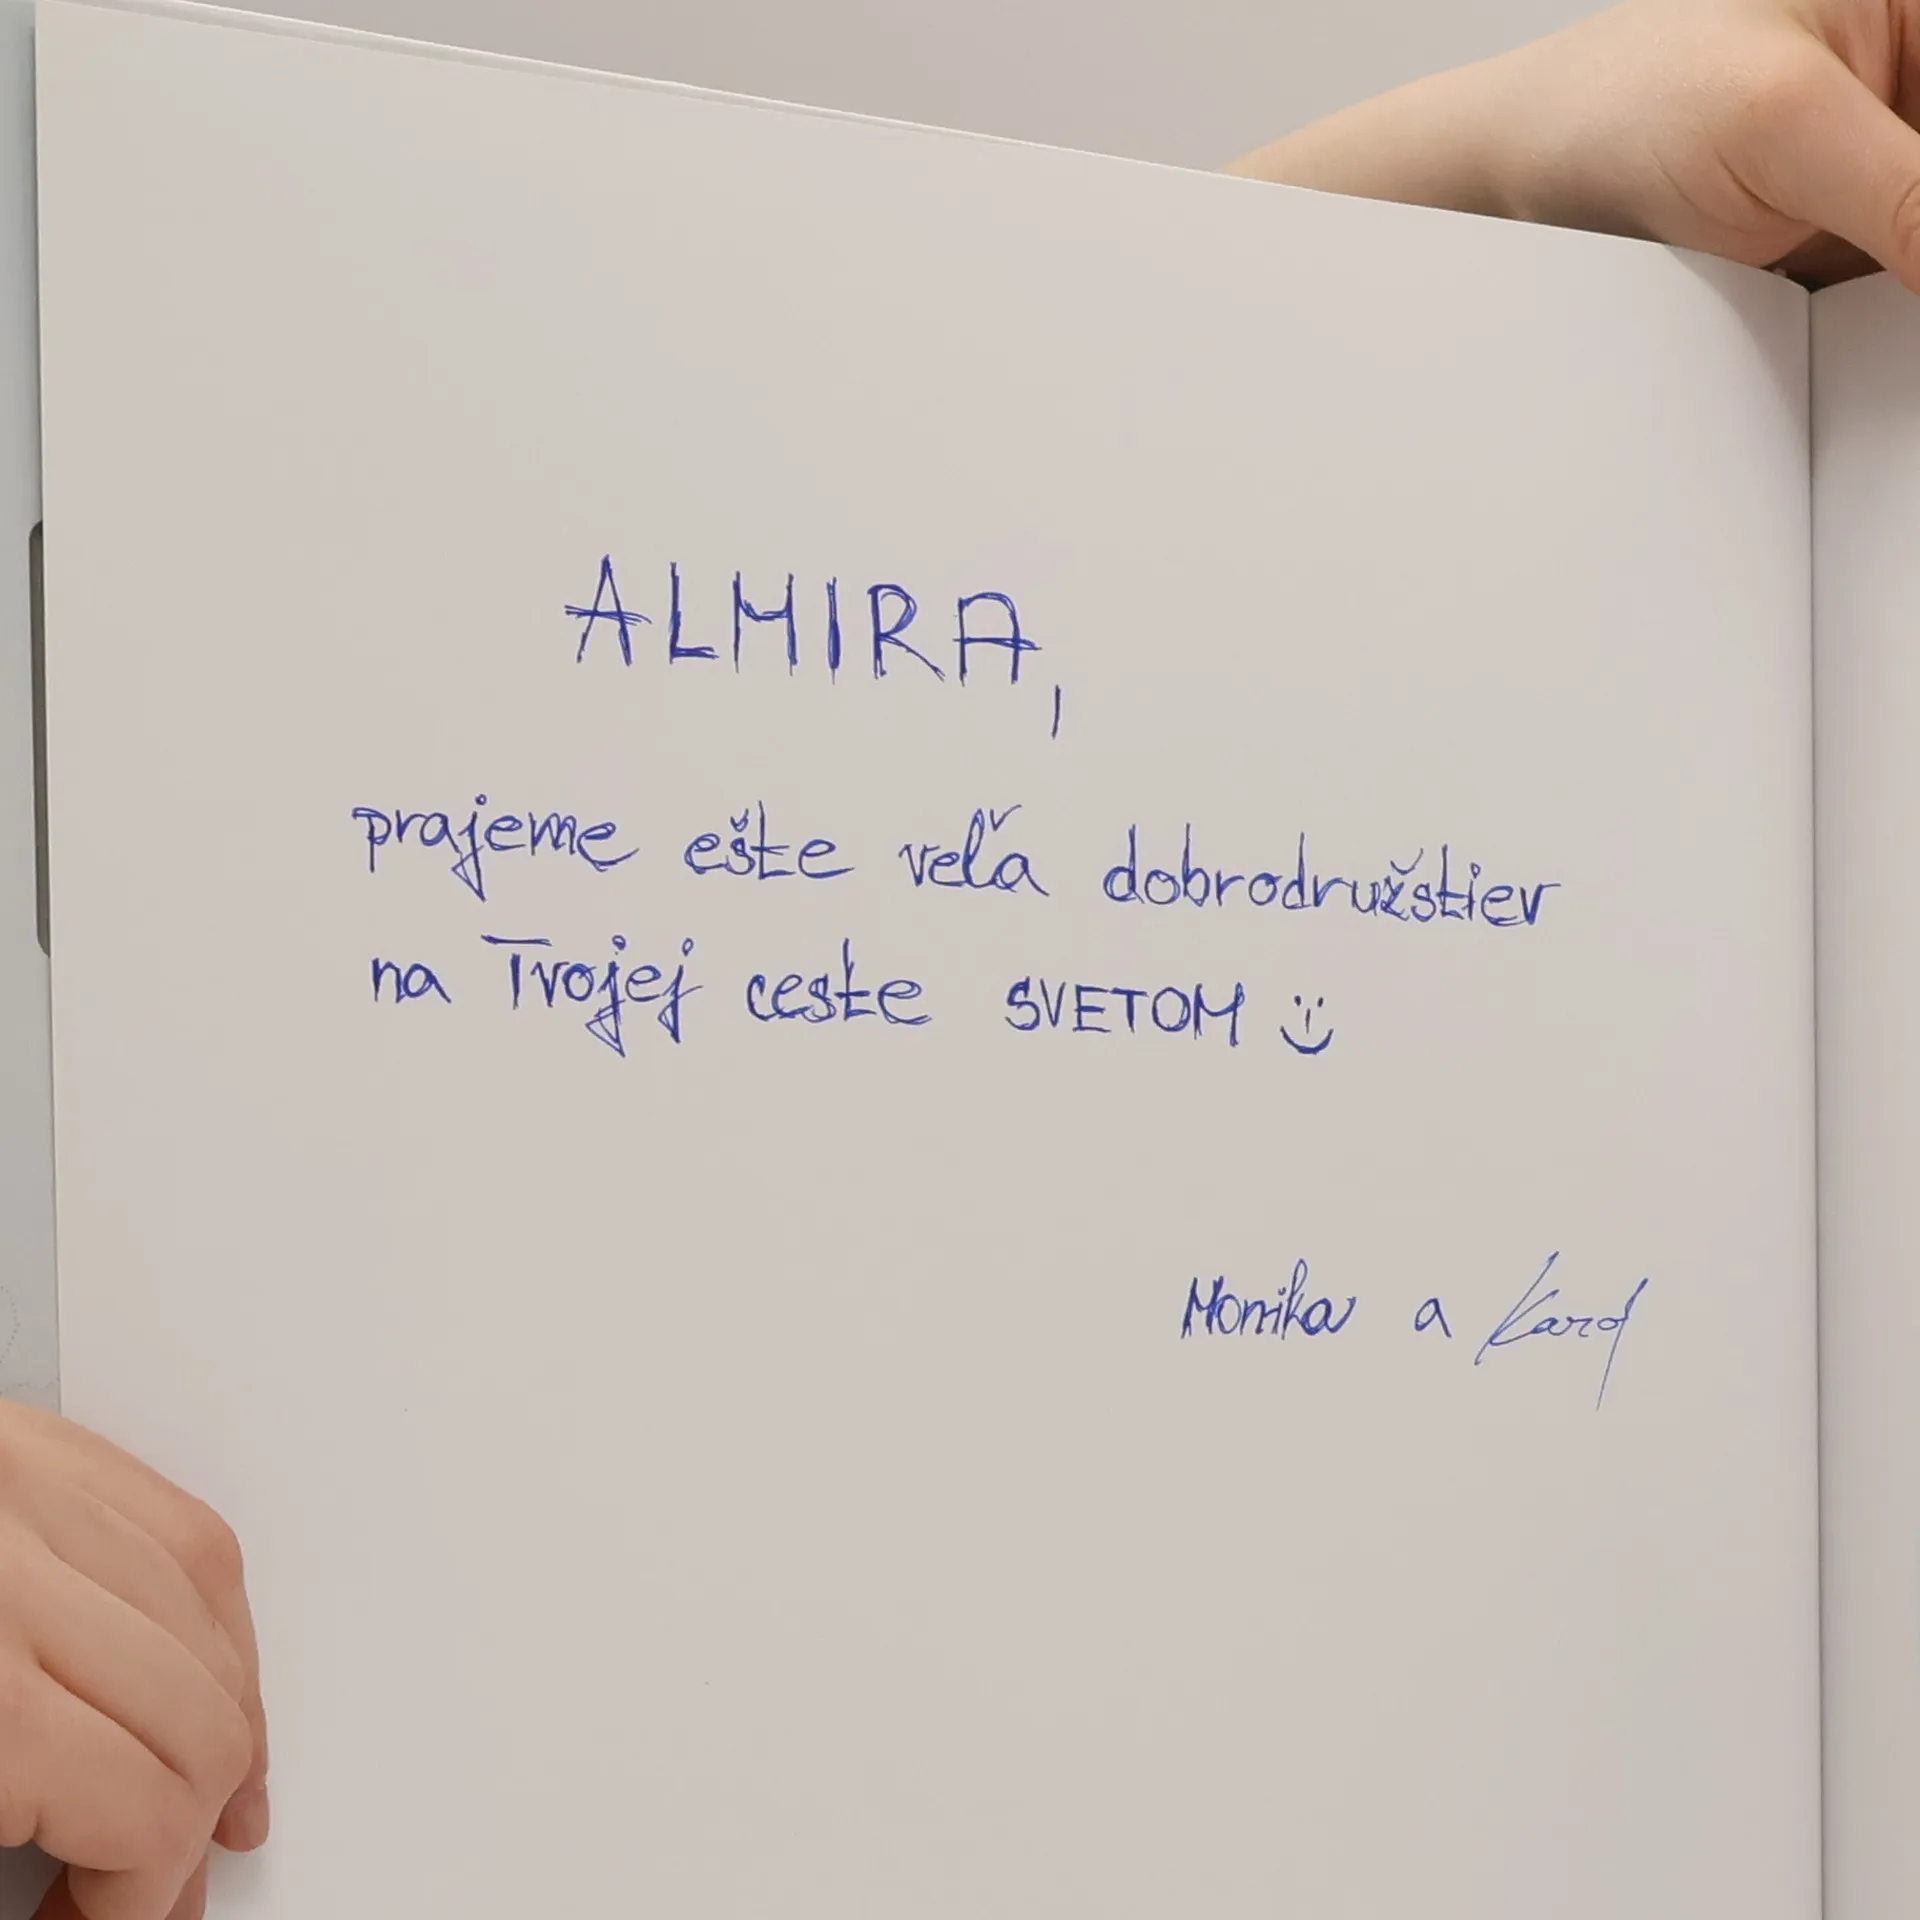 ALMIRA,
prajeme ešte veľa dobrodružstiev
na Tvojej ceste SVETOM :)
Monika a Karol